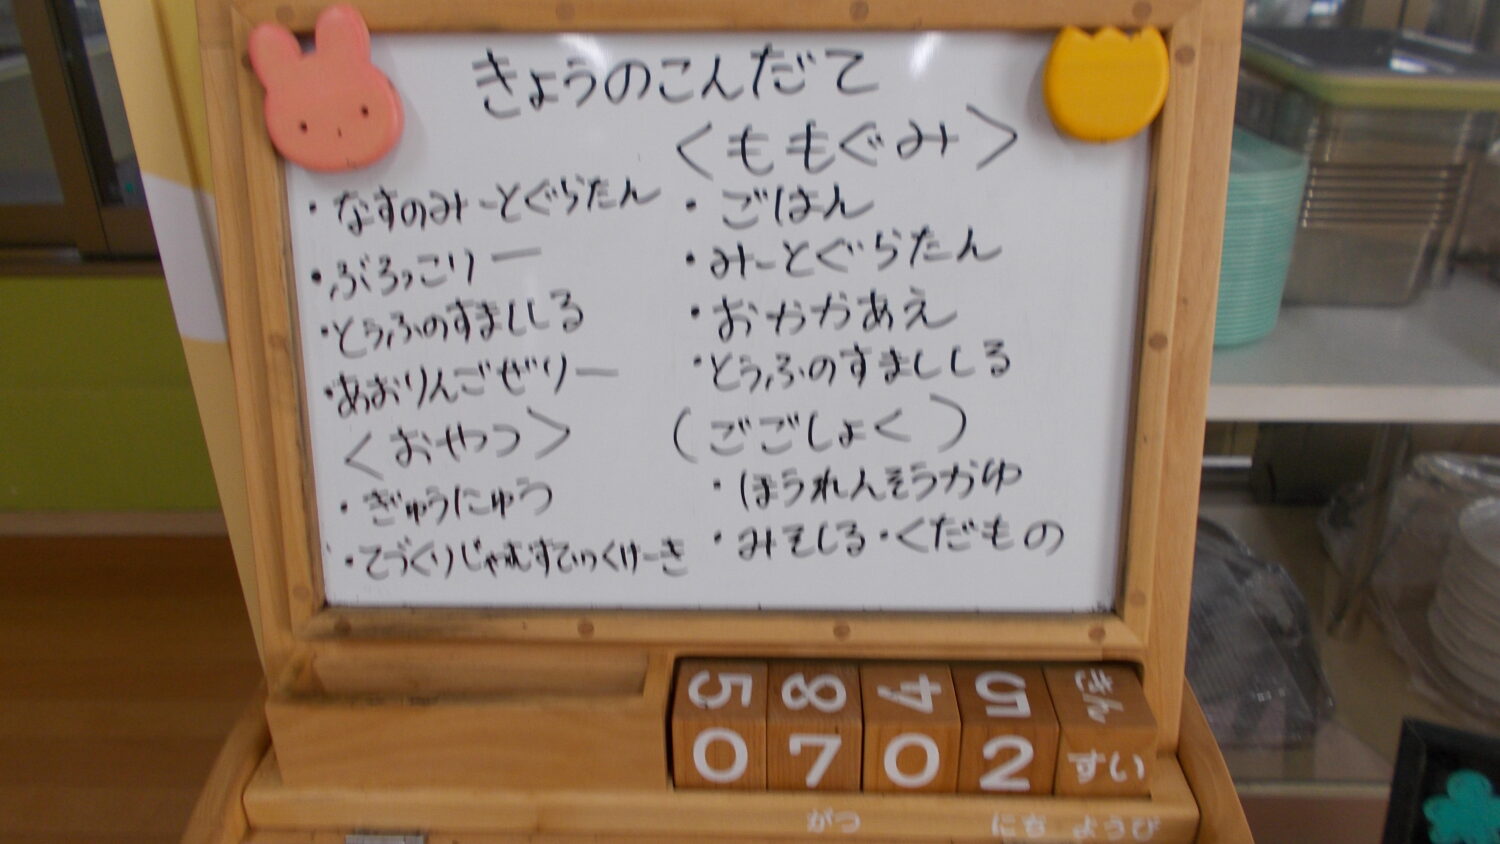 きょうのこんだて
・なすのみーとぐらたん
・ぶろっこりー
・とうふのすましじる
・あおりんごぜりー
＜おやつ＞
・ぎゅうにゅう
・てづくりじゃむすてぃっくけーき
＜ももぐみ＞
・ごはん
・みーとぐらたん
・おかかあえ
・とうふのすましじる
（ごごしょく）
・ほうれんそうかゆ
・みそしる・くだもの
5 8 4 5 きん
0 7 0 2 すい
がつ にち ようび